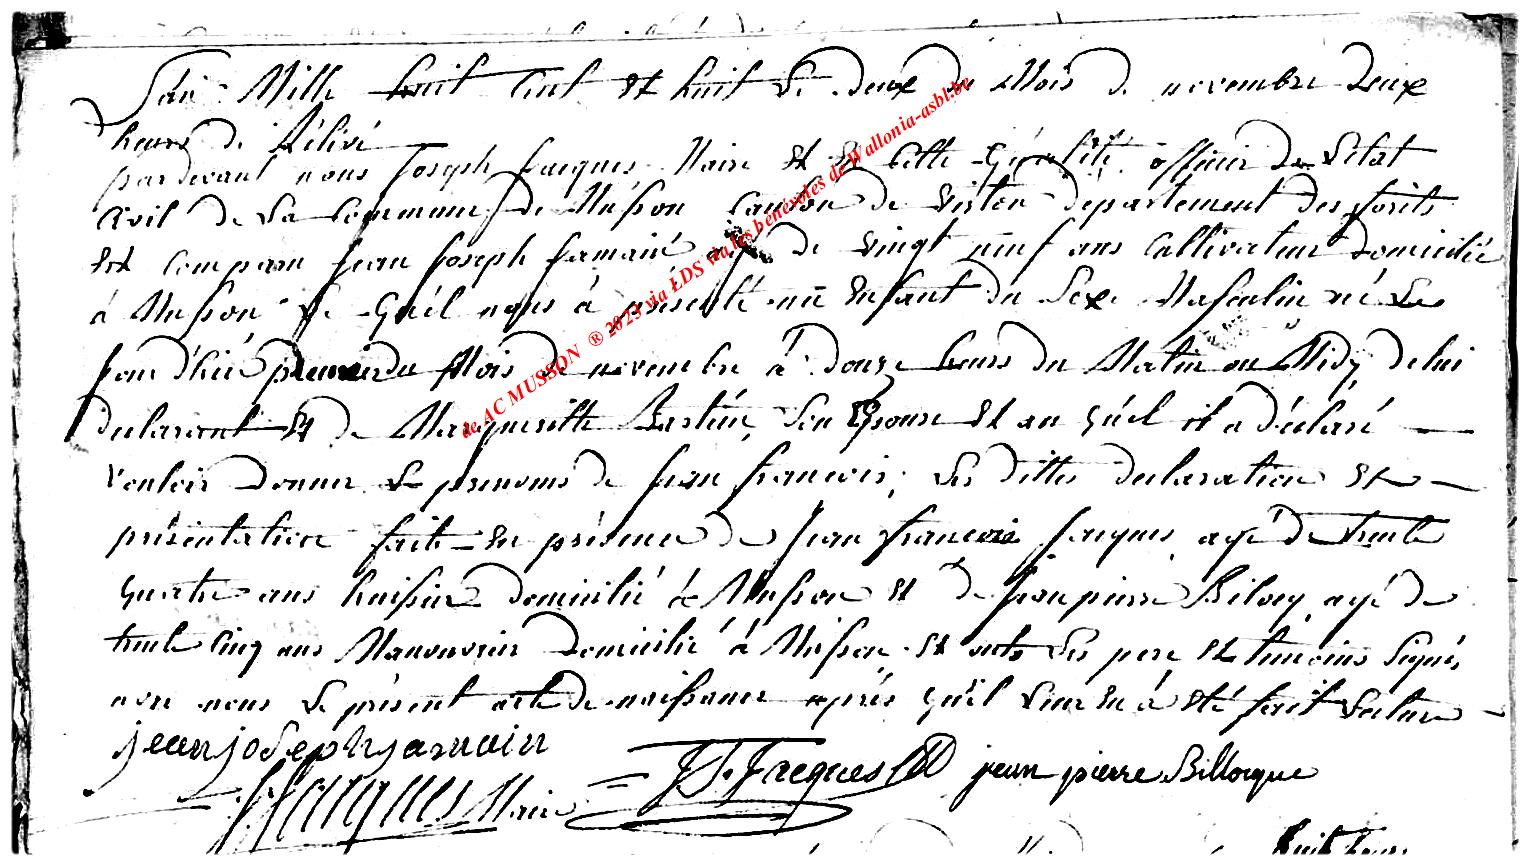 L'an Mille huit Cent Et huit Le deux du Mois de novembre deux
heures de Rélévé
pardevant nous Joseph Jacques Maire Et En Cette Quálité officier de L'etat
Civil de La Commune de Musson Canton de Virton département des forêts
Est Comparu Jean Joseph Jamain agé de vingt neuf ans Cultivateur domicilié
á Musson Le Quél nous á présenté un Enfant du Sexe Masculin né Le
jour d'hié premier du Mois de novembre á douze heures du Matin ou Midy de lui
declarant Et de Margueritte Son Epouse Et au Quél il a déclaré
vouloir donner Les prenoms de Jean francois, Les dittes declaration Et
présentation faite En présence de Jean francois Jacques agé de trente
quatre ans huissier domicilié á Musson Et de Jean pierre Bilocq agé de
trente Cinq ans Manouvrier domicilié á Musson Et ont Les pere Et témoins Signés
avec nous Le présent acte de naissance aprés Qu'il Leur En á Eté fait Lecture
jean joseph jamain
J Jacques Maire
J F Jacques
jean pierre Billocque
huit heures
de AC MUSSON ® 2023 via LDS via les bénévoles de Wallonia-asbl.be